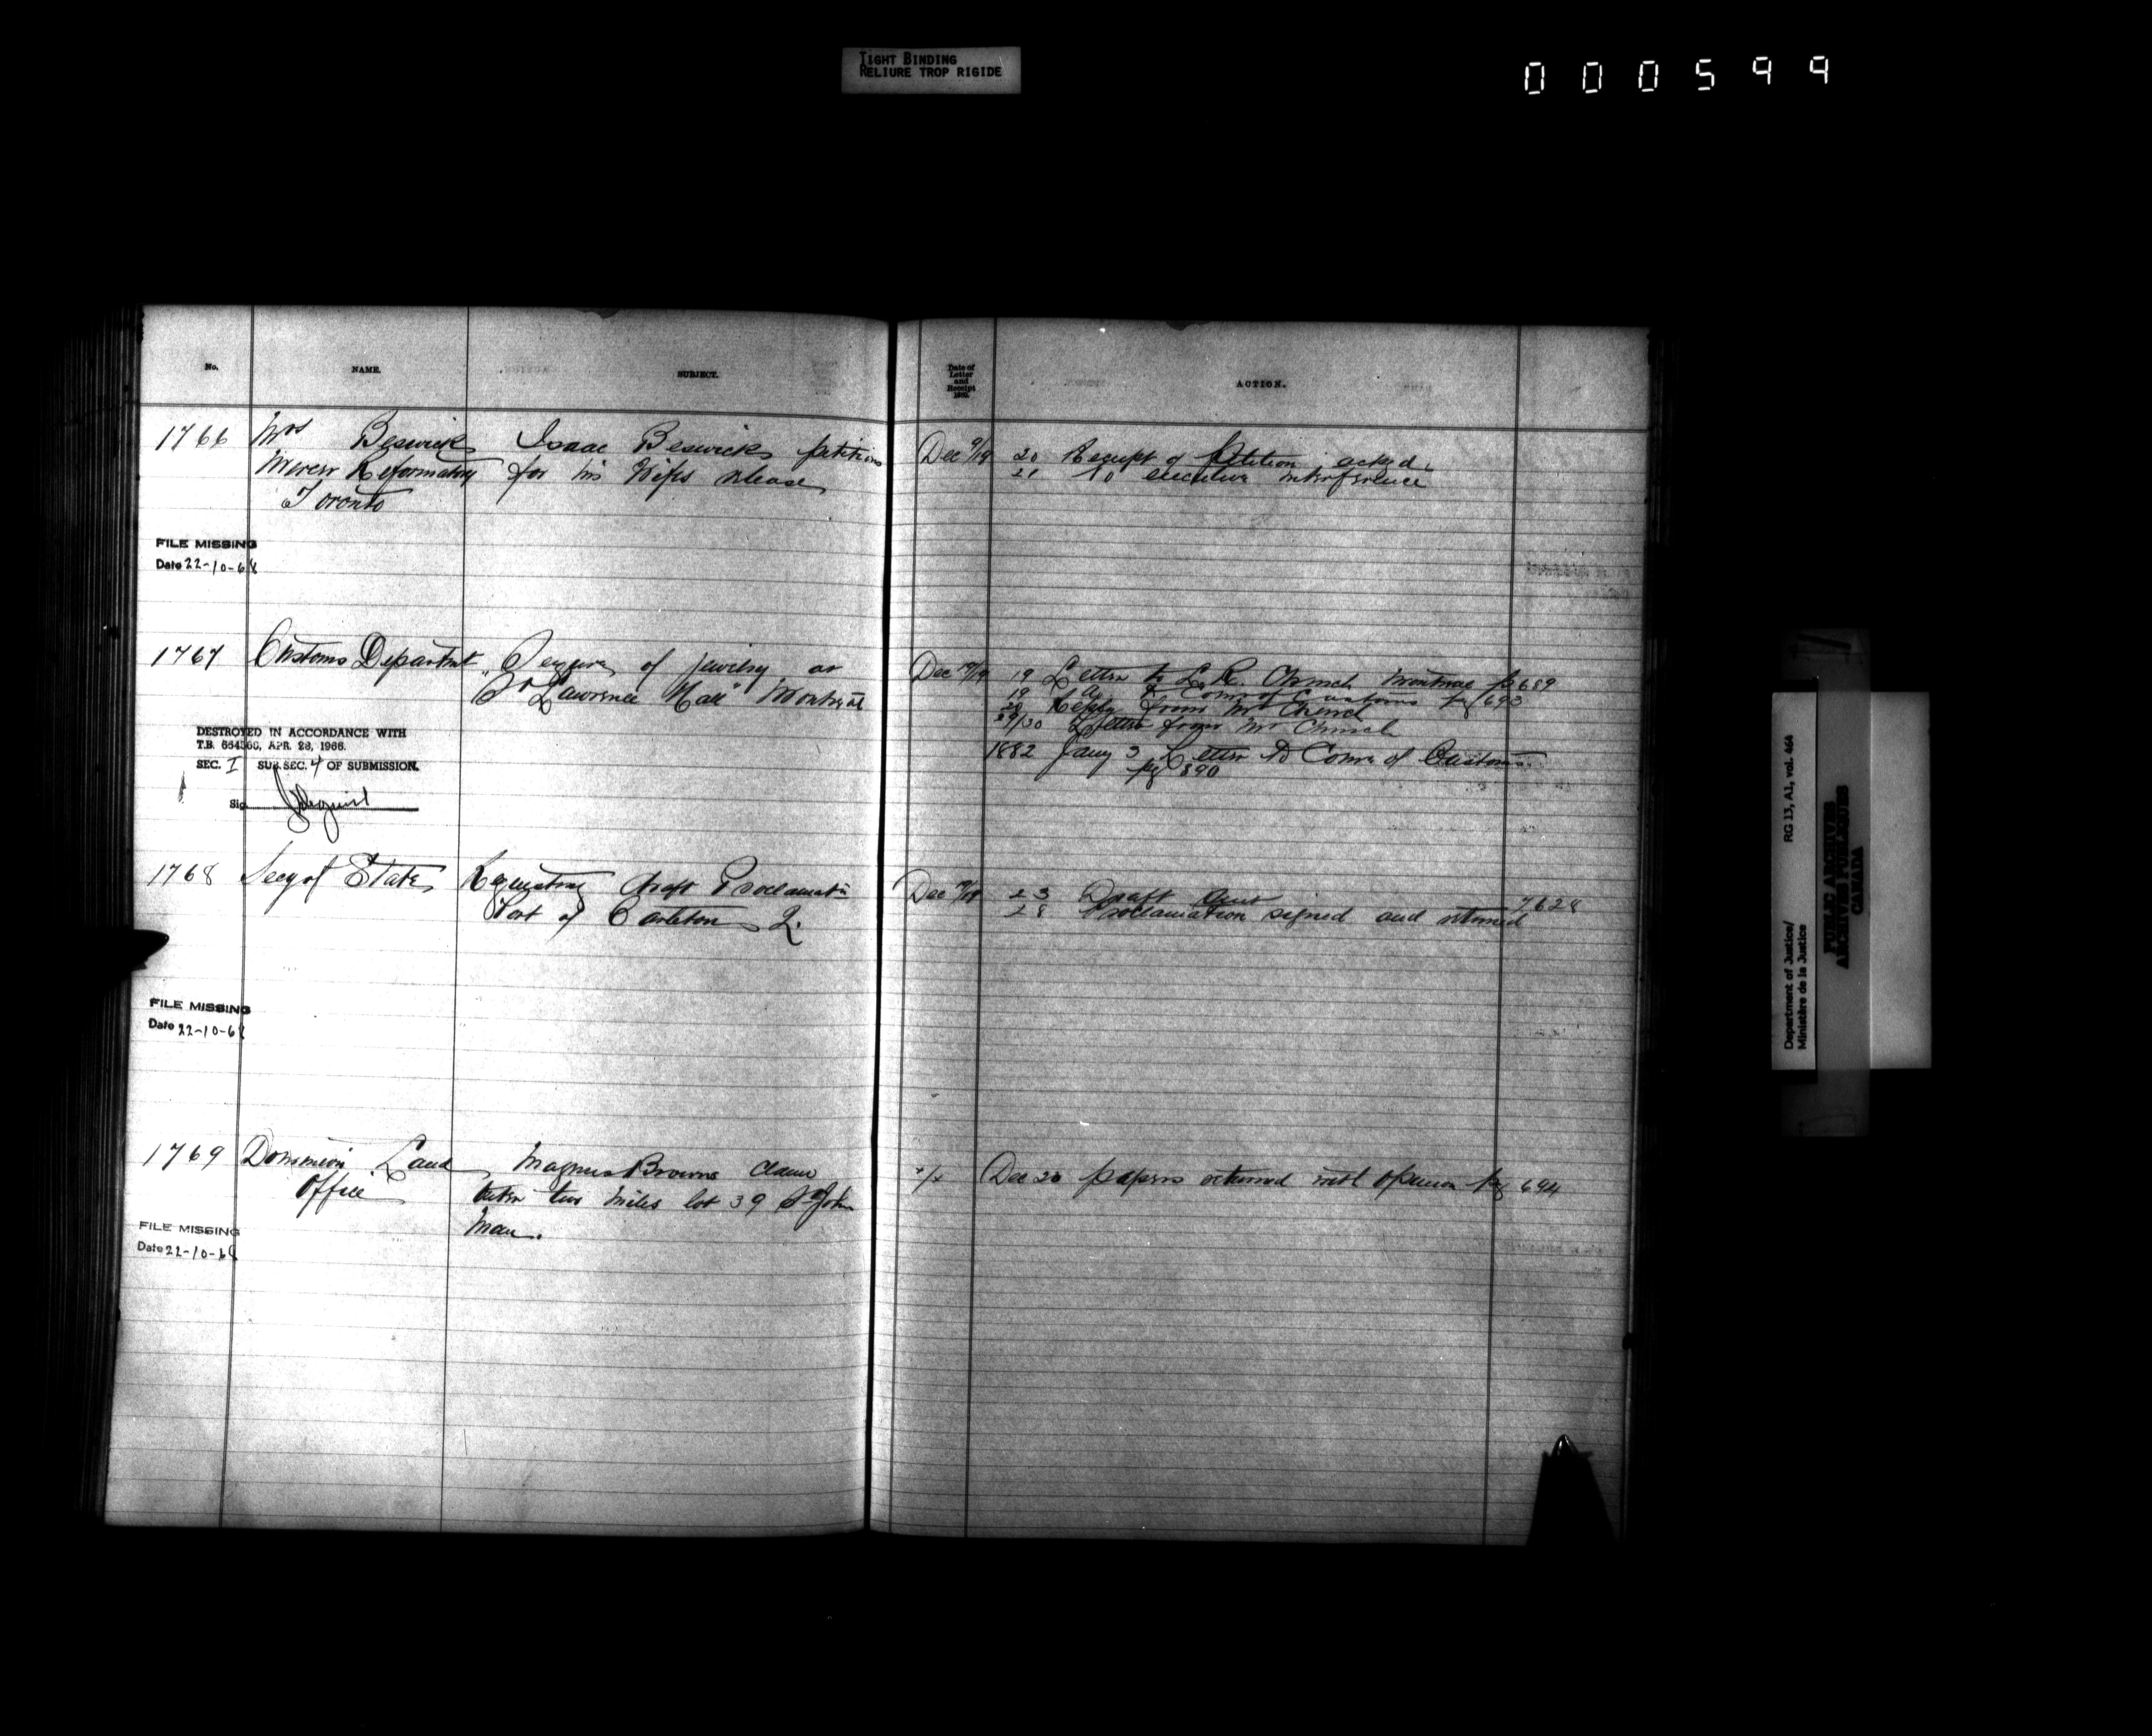 TIGHT BINDING
RELIURE TROP RIGIDE
000599
No. NAME. SUBJECT.
1766 Mrs Beswick Isaac Beswick petitions
Mercer Reformatory for his Wifes release
Toronto
FILE MISSING
Date 22-10-68
1767 Customs Department Seizure of jewelry at
"St Lawrence Hall" Montreal
DESTROYED IN ACCORDANCE WITH
T.B. 664360, APR. 28, 1966.
SEC. I SUB. SEC. 4 OF SUBMISSION.
Sig.
1768 Secy of State Requesting draft Proclamatn
Port of Carleton Q.
FILE MISSING
Date 22-10-68
1769 Dominion Land Magnus Browns claim
Office outer two miles lot 39 St John
Man.
FILE MISSING
Date 22-10-68
Date of
Letter
and
Receipt
ACTION.
Dec 9/19 20 Receipt of Petition ackd.
21 No executive interference
Dec 19/19 19 Letter to L.R. Church Montreal p 689
19 do to Comr of Customs pg 693
20 Reply from Mr Church
29/30 Letter from Mr Church
1882 Jany 3 Letter to Comr of Customs
pg 890
Dec 19/19 23 Draft sent 7628
28 Proclamation signed and returned
Dec 20 papers returned with opinion pg 694
Department of Justice/
Ministère de la Justice
RG 13, A1, vol. 464
PUBLIC ARCHIVES
ARCHIVES PUBLIQUES
CANADA